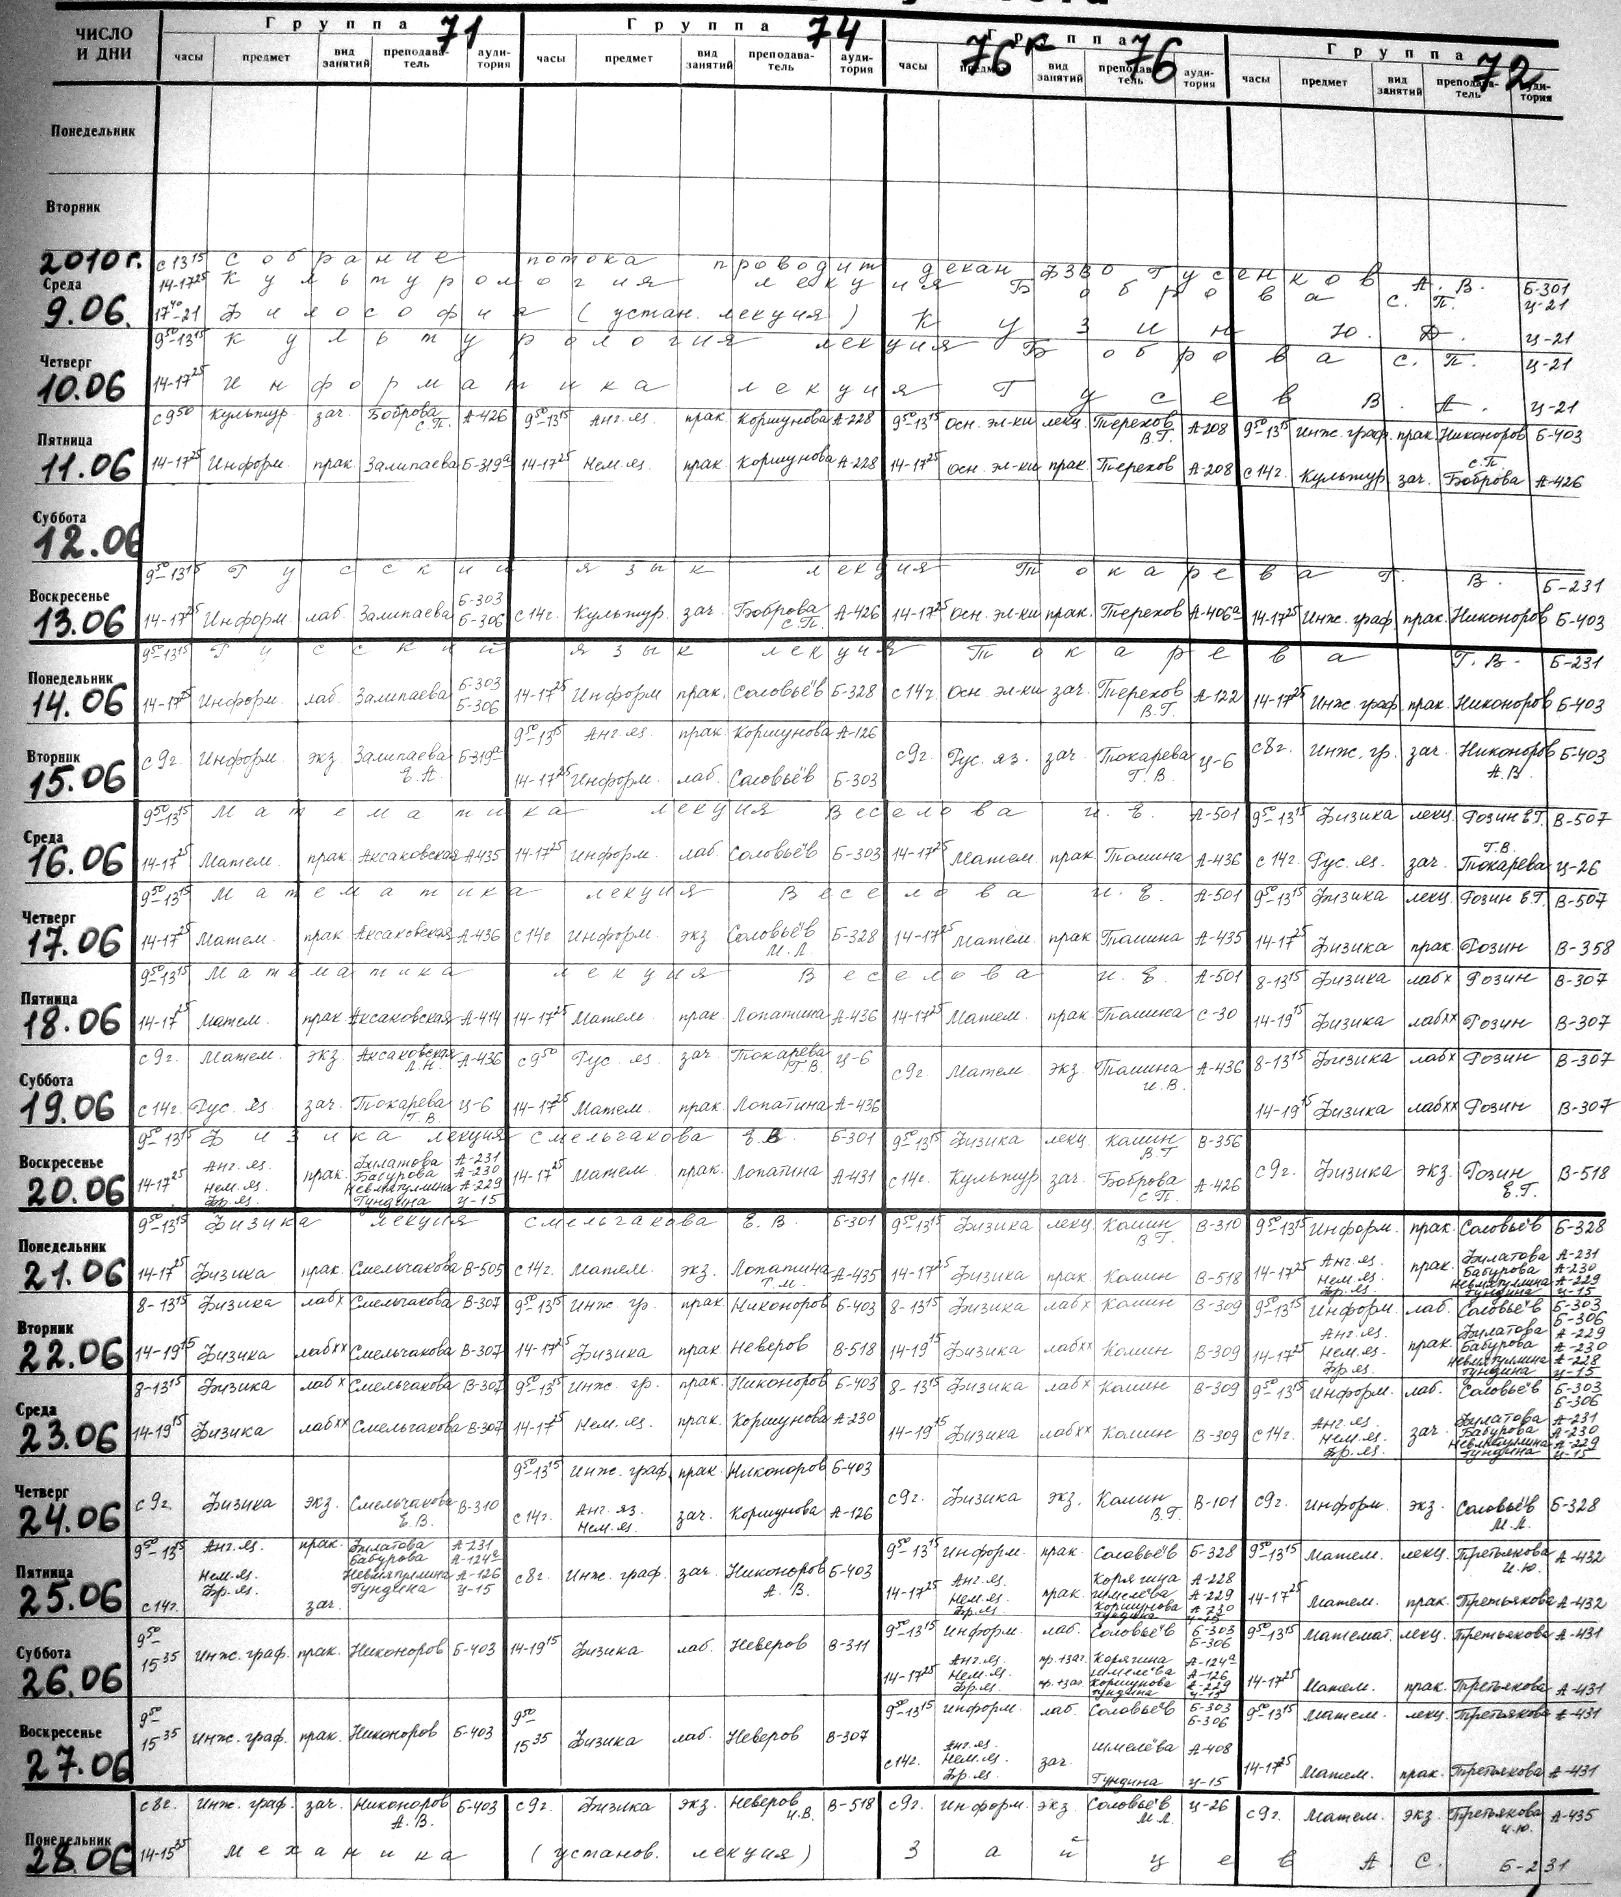 ЧИСЛО И ДНИ
Группа 71 Группа 74 Группа 76к 76 Группа 72
часы предмет вид занятий преподаватель аудитория часы предмет вид занятий преподаватель аудитория часы предмет вид занятий преподаватель аудитория часы предмет вид занятий преподаватель аудитория
Понедельник
Вторник
2010г.
Среда 9.06.
с 13 15 собрание потока проводит декан ФЗВО Гусенков А.В. Б-301
14-17 25 Культурология лекция Боброва С.П. Ц-21
17 40-21 Философия (устан. лекция) Кузин Ю.Д. Ц-21
Четверг 10.06
9 50-13 15 Культурология лекция Боброва С.П. Ц-21
14-17 25 Информатика лекция Гусев В.А. Ц-21
Пятница 11.06
с 9 50 Культур. зач. Боброва С.П. А-426 9 50-13 15 Анг.яз. прак. Коршунова А-228 9 50-13 15 Осн. эл-ки лекц. Терехов В.Г. А-208 9 50-13 15 Инж. граф. прак. Никоноров Б-403
14-17 25 Информ. прак. Залипаева Б-319а 14-17 25 Нем.яз. прак. Коршунова А-228 14-17 25 Осн. эл-ки прак. Терехов А-208 с 14ч. Культур зач. Боброва С.П. А-426
Суббота 12.06
Воскресенье 13.06
9 50-13 15 Русский язык лекция Токарева Г.В. Б-231
14-17 25 Информ. лаб. Залипаева Б-303 Б-306 с 14ч. Культур. зач. Боброва С.П. А-426 14-17 25 Осн. эл-ки прак. Терехов А-406а 14-17 25 Инж. граф. прак. Никоноров Б-403
Понедельник 14.06
9 50-13 15 Русский язык лекция Токарева Г.В. Б-231
14-17 25 Информ. лаб. Залипаева Б-303 Б-306 14-17 25 Информ. прак. Соловьёв Б-328 с 14ч Осн. эл-ки зач. Терехов В.Г. А-122 14-17 25 Инж. граф. прак. Никоноров Б-403
Вторник 15.06
9 50-13 15 Анг.яз. прак. Коршунова А-126
с 9ч. Информ. экз. Залипаева Е.А. Б-319а с 9ч. Рус. яз. зач. Токарева Г.В. Ц-6 с 8ч. Инж. гр. зач. Никоноров А.В. Б-403
14-17 25 Информ. лаб. Соловьёв Б-303
Среда 16.06
9 50-13 15 Математика лекция Веселова И.Е. А-501 9 50-13 15 Физика лекц. Розин Е.Г. В-507
14-17 25 Матем. прак. Аксаковская А-435 14-17 25 Информ. лаб. Соловьёв Б-303 14-17 25 Матем. прак. Томина А-436 с 14ч. Рус. яз. зач. Токарева Г.В. Ц-26
Четверг 17.06
9 50-13 15 Математика лекция Веселова И.Е. А-501 9 50-13 15 Физика лекц. Розин Е.Г. В-507
14-17 25 Матем. прак. Аксаковская А-436 с 14ч Информ. экз Соловьёв М.Л. Б-328 14-17 25 Матем. прак. Томина А-435 14-17 25 Физика прак. Розин В-358
Пятница 18.06
9 50-13 15 Математика лекция Веселова И.Е. А-501 8-13 15 Физика лаб х Розин В-307
14-17 25 Матем. прак. Аксаковская А-414 14-17 25 Матем. прак. Лопатина А-436 14-17 25 Матем. прак. Томина С-30 14-19 15 Физика лаб хх Розин В-307
Суббота 19.06
с 9ч. Матем. экз. Аксаковская Л.Н. А-436 с 9 50 Рус. яз. зач. Токарева Г.В. Ц-6 с 9ч. Матем. экз. Томина И.В. А-436 8-13 15 Физика лаб х Розин В-307
с 14ч. Рус. яз. зач. Токарева Г.В. Ц-6 14-17 25 Матем. прак. Лопатина А-436 14-19 15 Физика лаб хх Розин В-307
Воскресенье 20.06
9 50-13 15 Физика лекция Смельчакова Е.В. Б-301 9 50-13 15 Физика лекц. Комин В.Г. В-356
14-17 25 Анг.яз. Нем.яз. Фр.яз. прак. Филатова А-231 Бабурова А-230 Невмятуллина А-229 Гундина Ц-15 14-17 25 Матем. прак. Лопатина А-431 с 14ч. Культур зач. Боброва С.П. А-426 с 9ч. Физика экз. Розин Е.Г. В-518
Понедельник 21.06
9 50-13 15 Физика лекция Смельчакова Е.В. Б-301 9 50-13 15 Физика лекц. Комин В.Г. В-310 9 50-13 15 Информ. прак. Соловьёв Б-328
14-17 25 Физика прак. Смельчакова В-505 с 14ч. Матем. экз. Лопатина Т.М. А-435 14-17 25 Физика прак. Комин В-518 14-17 25 Анг.яз. Нем.яз. Фр.яз. прак. Филатова А-231 Бабурова А-230 Невмятуллина А-229 Гундина Ц-15
Вторник 22.06
8-13 15 Физика лаб х Смельчакова В-307 9 50-13 15 Инж. гр. прак. Никоноров Б-403 8-13 15 Физика лаб х Комин В-309 9 50-13 15 Информ. лаб. Соловьёв Б-303 Б-306
14-19 15 Физика лаб хх Смельчакова В-307 14-17 25 Физика прак. Неверов В-518 14-19 15 Физика лаб хх Комин В-309 14-17 25 Анг.яз. Нем.яз. Фр.яз. прак. Филатова А-229 Бабурова А-230 Невмятуллина А-228 Гундина Ц-15
Среда 23.06
8-13 15 Физика лаб х Смельчакова В-307 9 50-13 15 Инж. гр. прак. Никоноров Б-403 8-13 15 Физика лаб х Комин В-309 9 50-13 15 Информ. лаб. Соловьёв Б-303 Б-306
14-19 15 Физика лаб хх Смельчакова В-307 14-17 25 Нем.яз. прак. Коршунова А-230 14-19 15 Физика лаб хх Комин В-309 с 14ч. Анг.яз. Нем.яз. Фр.яз. зач. Филатова А-231 Бабурова А-230 Невмятуллина А-229 Гундина Ц-15
Четверг 24.06
9 50-13 15 Инж. граф. прак. Никоноров Б-403
с 9ч. Физика экз. Смельчакова Е.В. В-310 с 14ч. Анг. яз. Нем.яз. зач. Коршунова А-126 с 9ч. Физика экз. Комин В.Г. В-101 с 9ч. Информ. экз. Соловьёв М.Л. Б-328
Пятница 25.06
9 50-13 15 Анг.яз. Нем.яз. Фр.яз. прак. Филатова А-231 Бабурова А-124а Невмятуллина А-126 Гундина Ц-15 с 8ч. Инж. граф. зач. Никоноров А.В. Б-403 9 50-13 15 Информ. прак. Соловьёв Б-328 9 50-13 15 Матем. лекц. Третьякова И.Ю. А-432
с 14ч. зач. 14-17 25 Анг.яз. Нем.яз. Фр.яз. прак. Корягина А-228 Шмелёва А-229 Коршунова А-230 Гундина Ц-15 14-17 25 Матем. прак. Третьякова А-432
Суббота 26.06
9 50-15 35 Инж. граф. прак. Никоноров Б-403 14-19 15 Физика лаб. Неверов В-311 9 50-13 15 Информ. лаб. Соловьёв Б-303 Б-306 9 50-13 15 Математ. лекц. Третьякова А-431
14-17 25 Анг.яз. Нем.яз. Фр.яз. пр.+зач. пр.+зач. Корягина А-124а Шмелёва А-126 Коршунова А-229 Гундина Ц-15 14-17 25 Матем. прак. Третьякова А-431
Воскресенье 27.06
9 50-15 35 Инж. граф. прак. Никоноров Б-403 9 50-15 35 Физика лаб. Неверов В-307 9 50-13 15 Информ. лаб. Соловьёв Б-303 Б-306 9 50-13 15 Матем. лекц. Третьякова А-431
с 14ч. Анг.яз. Нем.яз. Фр.яз. зач. Шмелёва А-408 Гундина Ц-15 14-17 25 Матем. прак. Третьякова А-431
Понедельник 28.06
с 8ч. Инж. граф. зач. Никоноров А.В. Б-403 с 9ч. Физика экз. Неверов И.В. В-518 с 9ч. Информ. экз. Соловьёв М.Л. Ц-26 с 9ч. Матем. экз. Третьякова И.Ю. А-435
14-15 35 Механика (установ. лекция) Зайцев А.С. Б-231